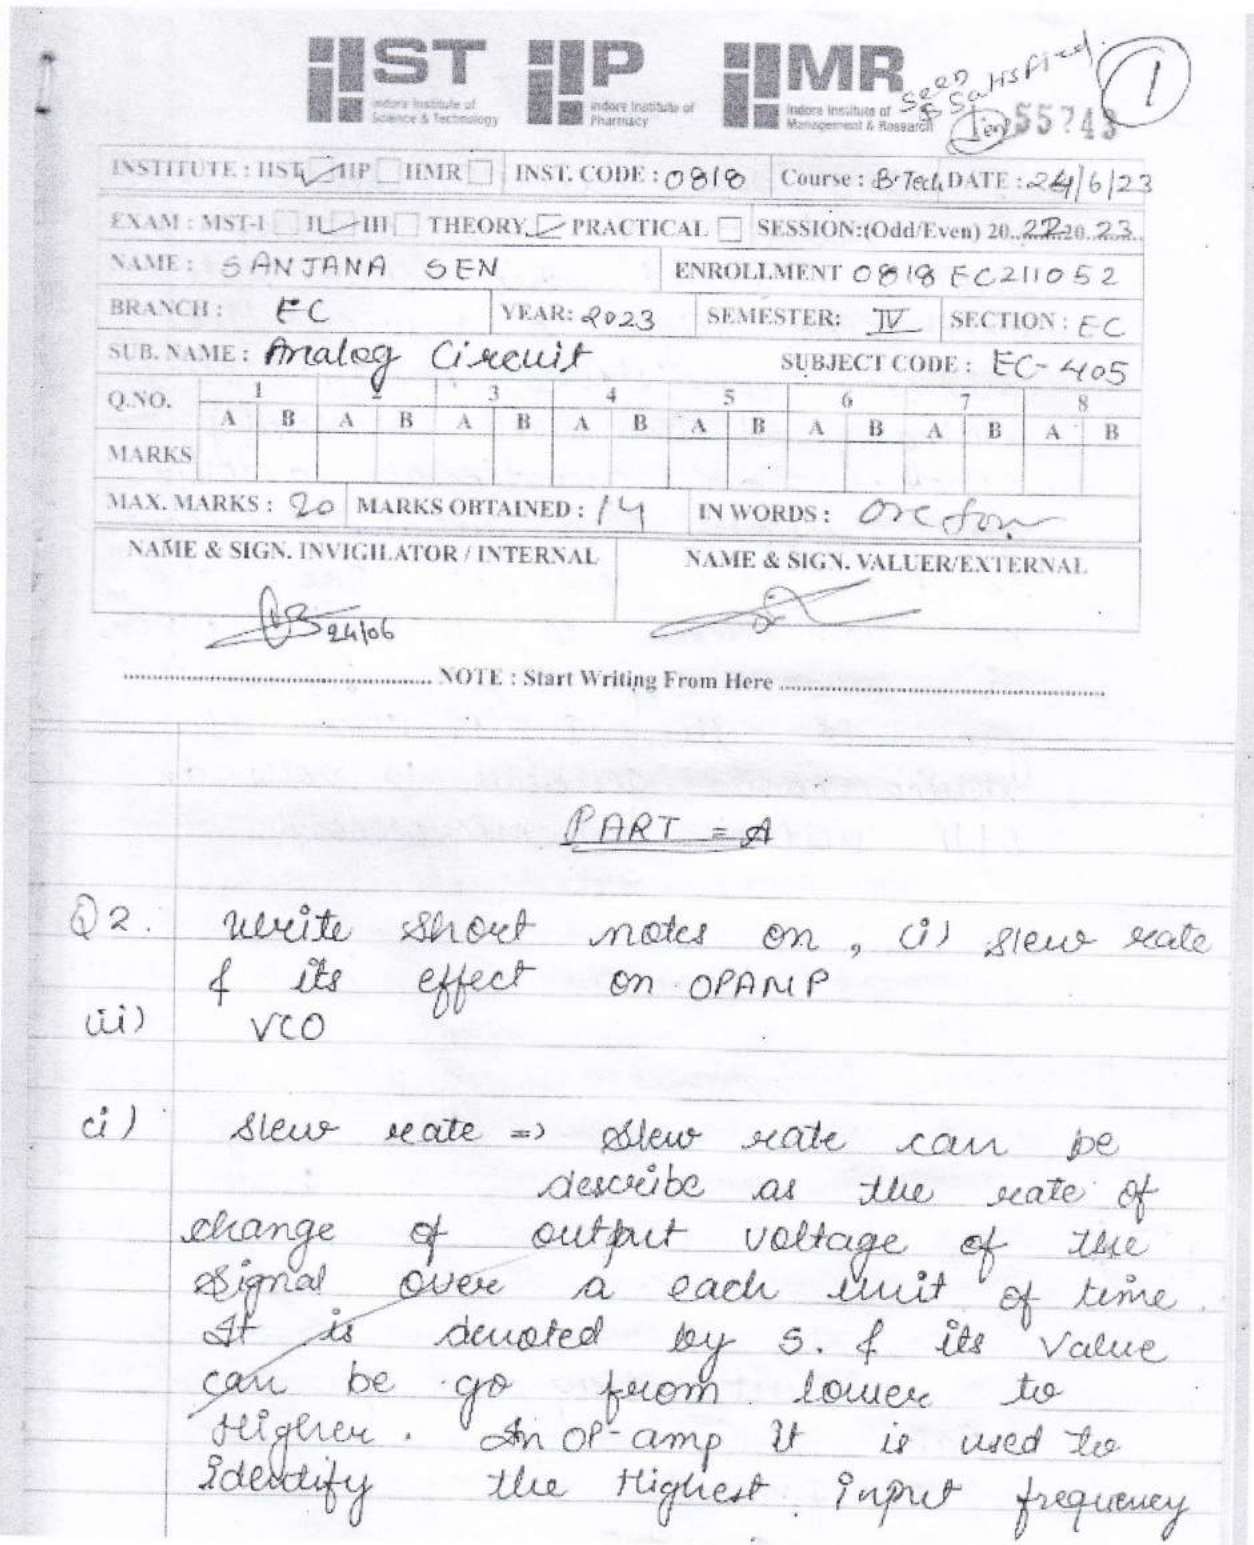 IIST IIP IIMR
Indore Institute of Science & Technology
Indore Institute of Pharmacy
Indore Institute of Management & Research
Seen & Satisfied.
1
55743
INSTITUTE : IIST IIP IIMR INST. CODE : 0818 Course : B.Tech DATE : 24/6/23
EXAM : MST-I II III THEORY PRACTICAL SESSION:(Odd/Even) 20..22.20.23.
NAME : SANJANA SEN ENROLLMENT 0818 EC211052
BRANCH : EC YEAR: 2023 SEMESTER: IV SECTION : EC
SUB. NAME : Analog Circuit SUBJECT CODE : EC-405
Q.NO. 1 2 3 4 5 6 7 8
A B A B A B A B A B A B A B A B
MARKS
MAX. MARKS : 20 MARKS OBTAINED : 14 IN WORDS : One four
NAME & SIGN. INVIGILATOR / INTERNAL NAME & SIGN. VALUER/EXTERNAL
24/06
NOTE : Start Writing From Here
PART = A
Q2. Write short notes on, (i) slew rate
& its effect on OPAMP
(iii) VCO
(i) Slew rate => Slew rate can be
describe as the rate of
change of output voltage of the
signal over a each unit of time.
It is denoted by S. & its value
can be go from lower to
Higher. In OP-amp it is used to
identify the Highest input frequency